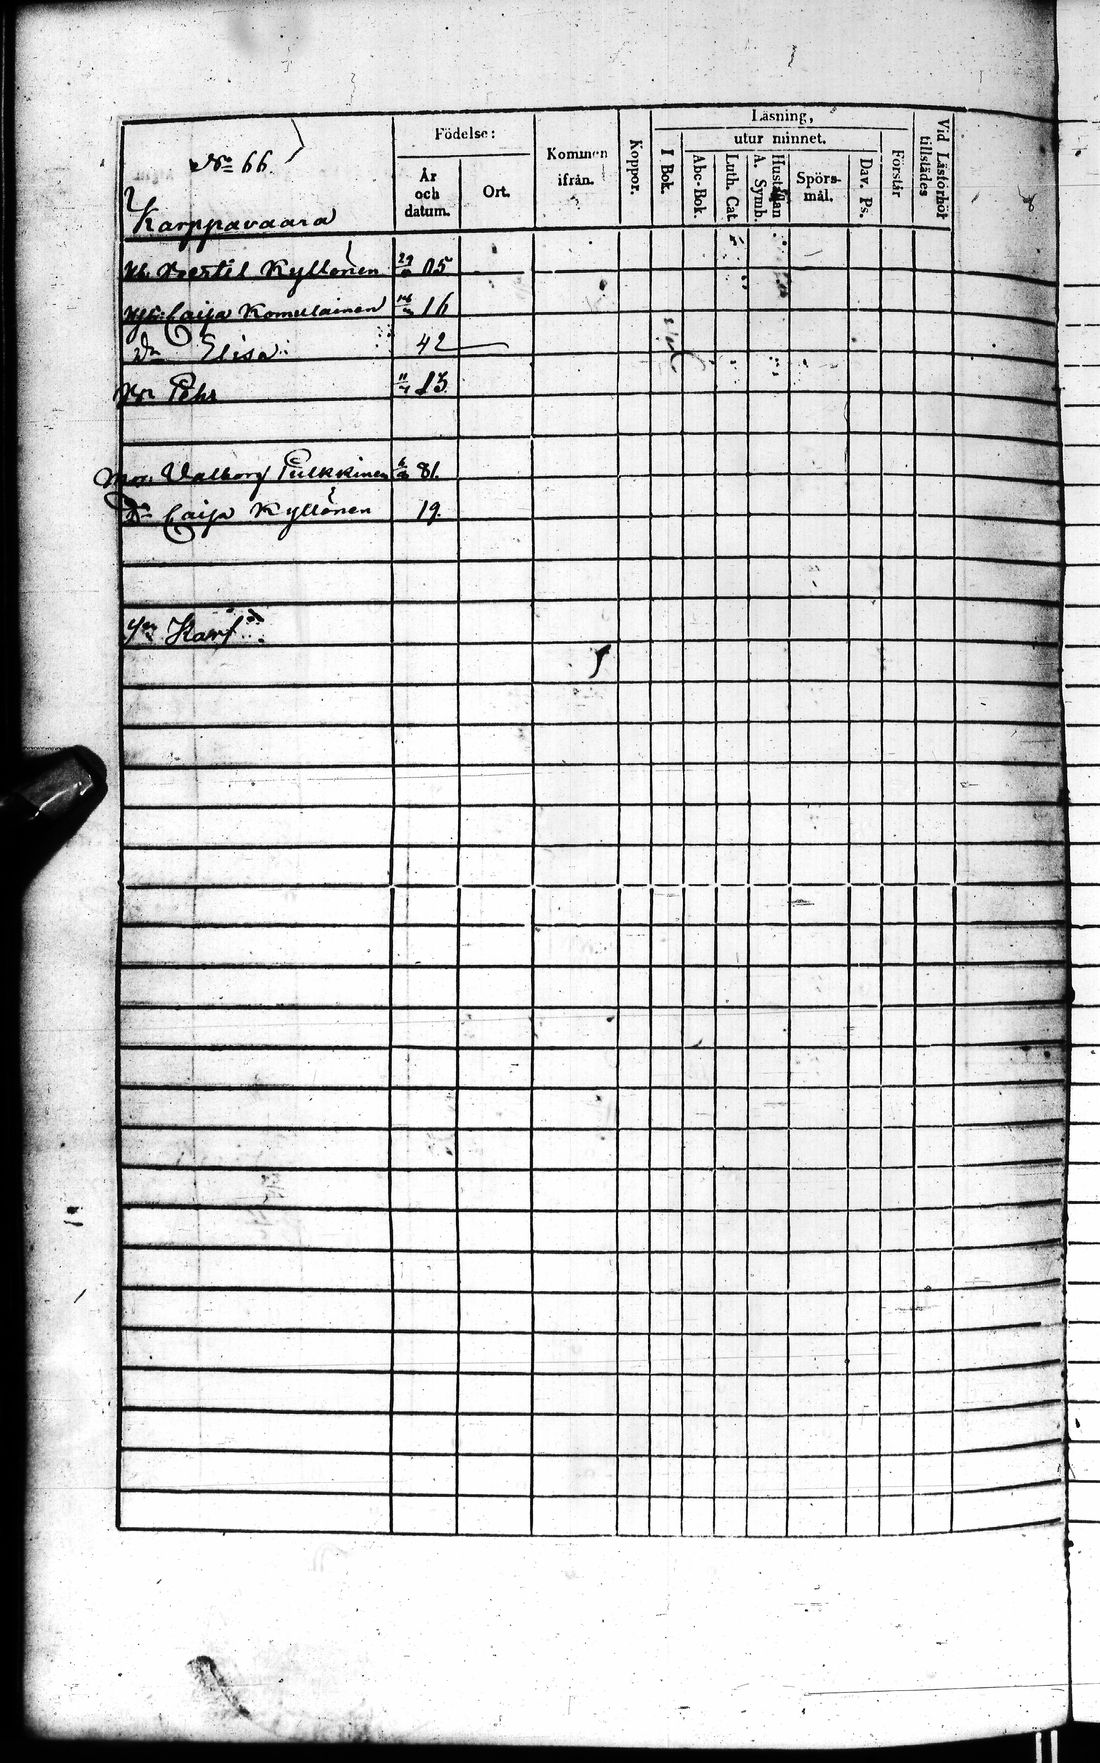 No 66.
Karppavaara
Födelse:
År och datum.
Ort.
Kommen ifrån.
Koppor.
Läsning,
utur minnet.
I Bok.
Abc-Bok.
Luth. Cat.
A. Symb.
Hustaflan
Spörsmål.
Dav. Ps.
Förstår
Vid Läsförhör tillstädes
Bertil Kyllönen 05
Caisa Komulainen 16
Dr Elisa 42
Pehr 13
Mor Valborg Pulkkinen 81.
Dr Caisa Kyllönen 19.